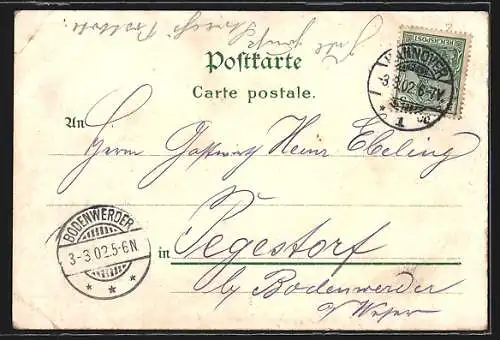 Postkarte
Carte postale.
REICHSPOST
HANNOVER
3.3.02.6-7V.
1
An Herrn Gastwirt Heinr. Ebeling
BODENWERDER
3-3.02.5-6N
in Pegestorf
by Bodenwerder
a/Weser